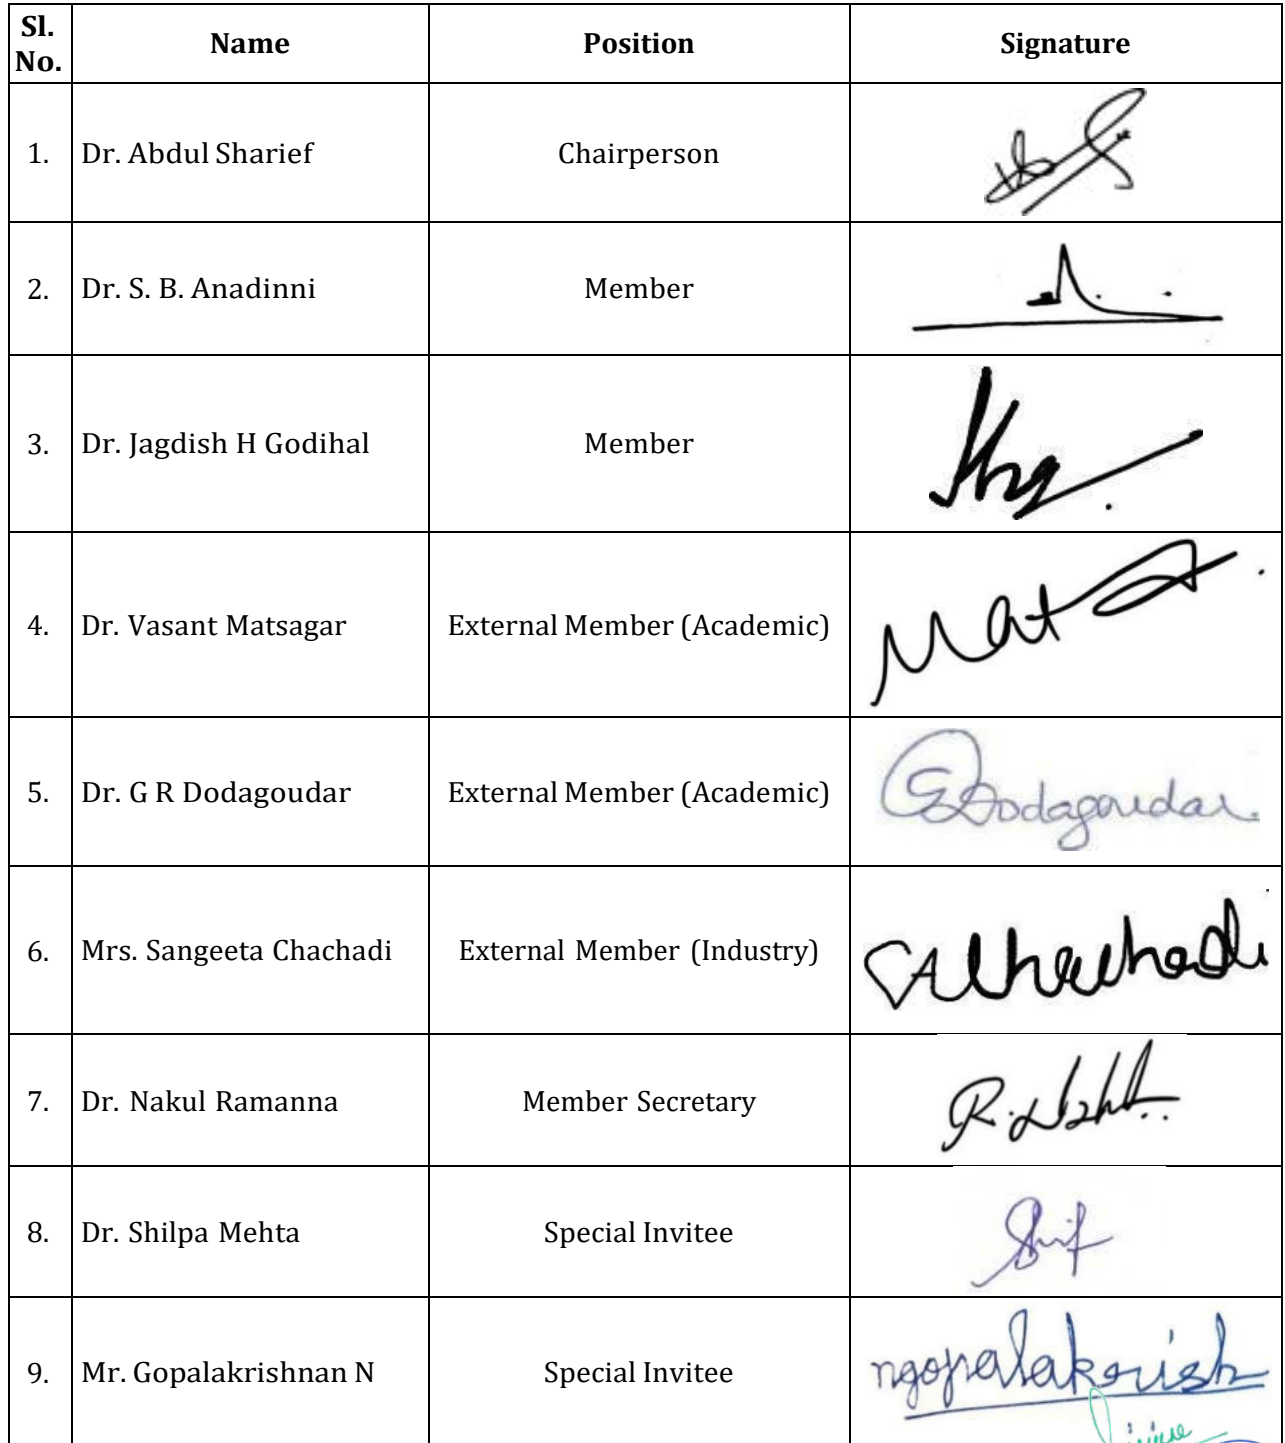 Sl. No. Name Position Signature
1. Dr. Abdul Sharief Chairperson
2. Dr. S. B. Anadinni Member
3. Dr. Jagdish H Godihal Member
4. Dr. Vasant Matsagar External Member (Academic) Mat
5. Dr. G R Dodagoudar External Member (Academic) Dodagoudar
6. Mrs. Sangeeta Chachadi External Member (Industry) Chachadi
7. Dr. Nakul Ramanna Member Secretary
8. Dr. Shilpa Mehta Special Invitee
9. Mr. Gopalakrishnan N Special Invitee ngopalakrish